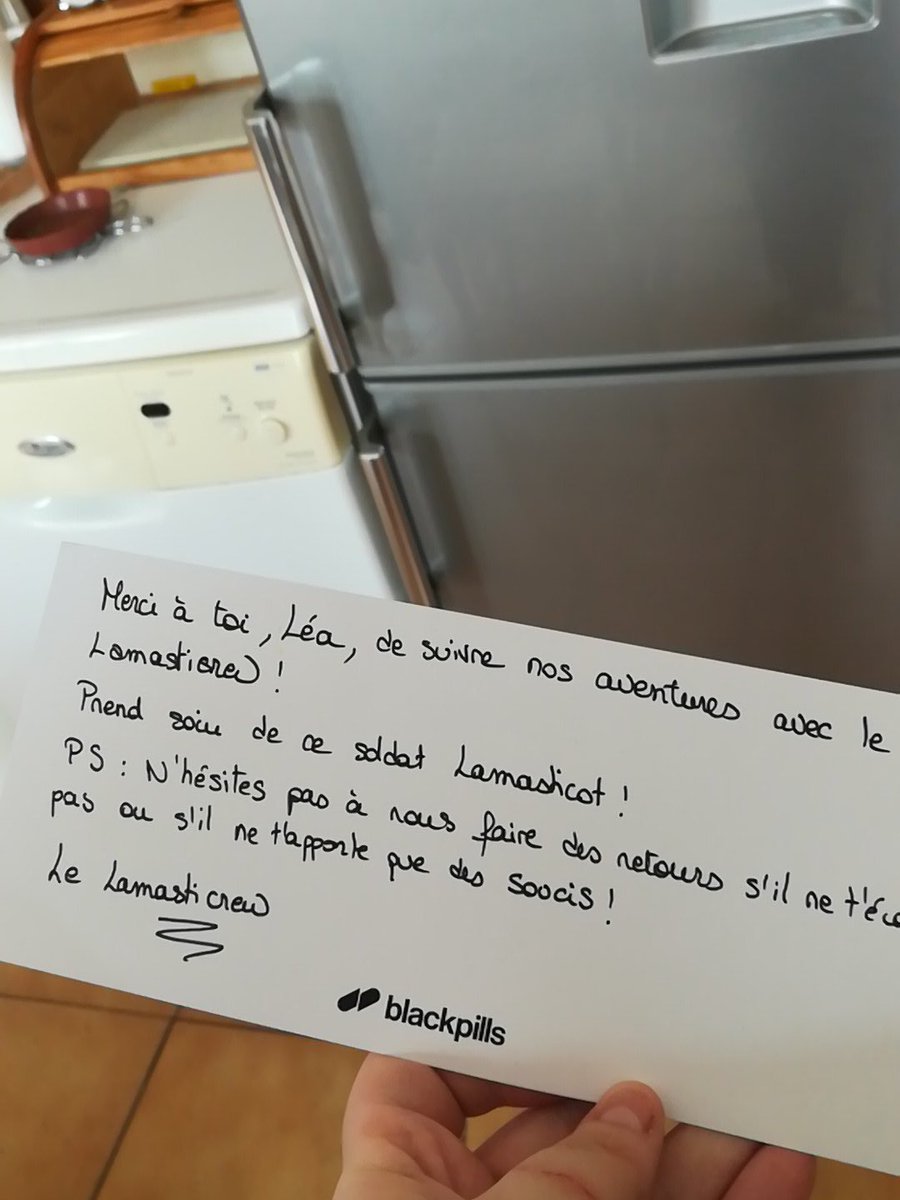 Merci à toi, Léa, de suivre nos aventures avec le
Lamasticrew !
Prend soin de ce soldat Lamasticot !
PS : N'hésites pas à nous faire des retours s'il ne
pas ou s'il ne t'apporte que des soucis !
Le Lamasticrew
blackpills